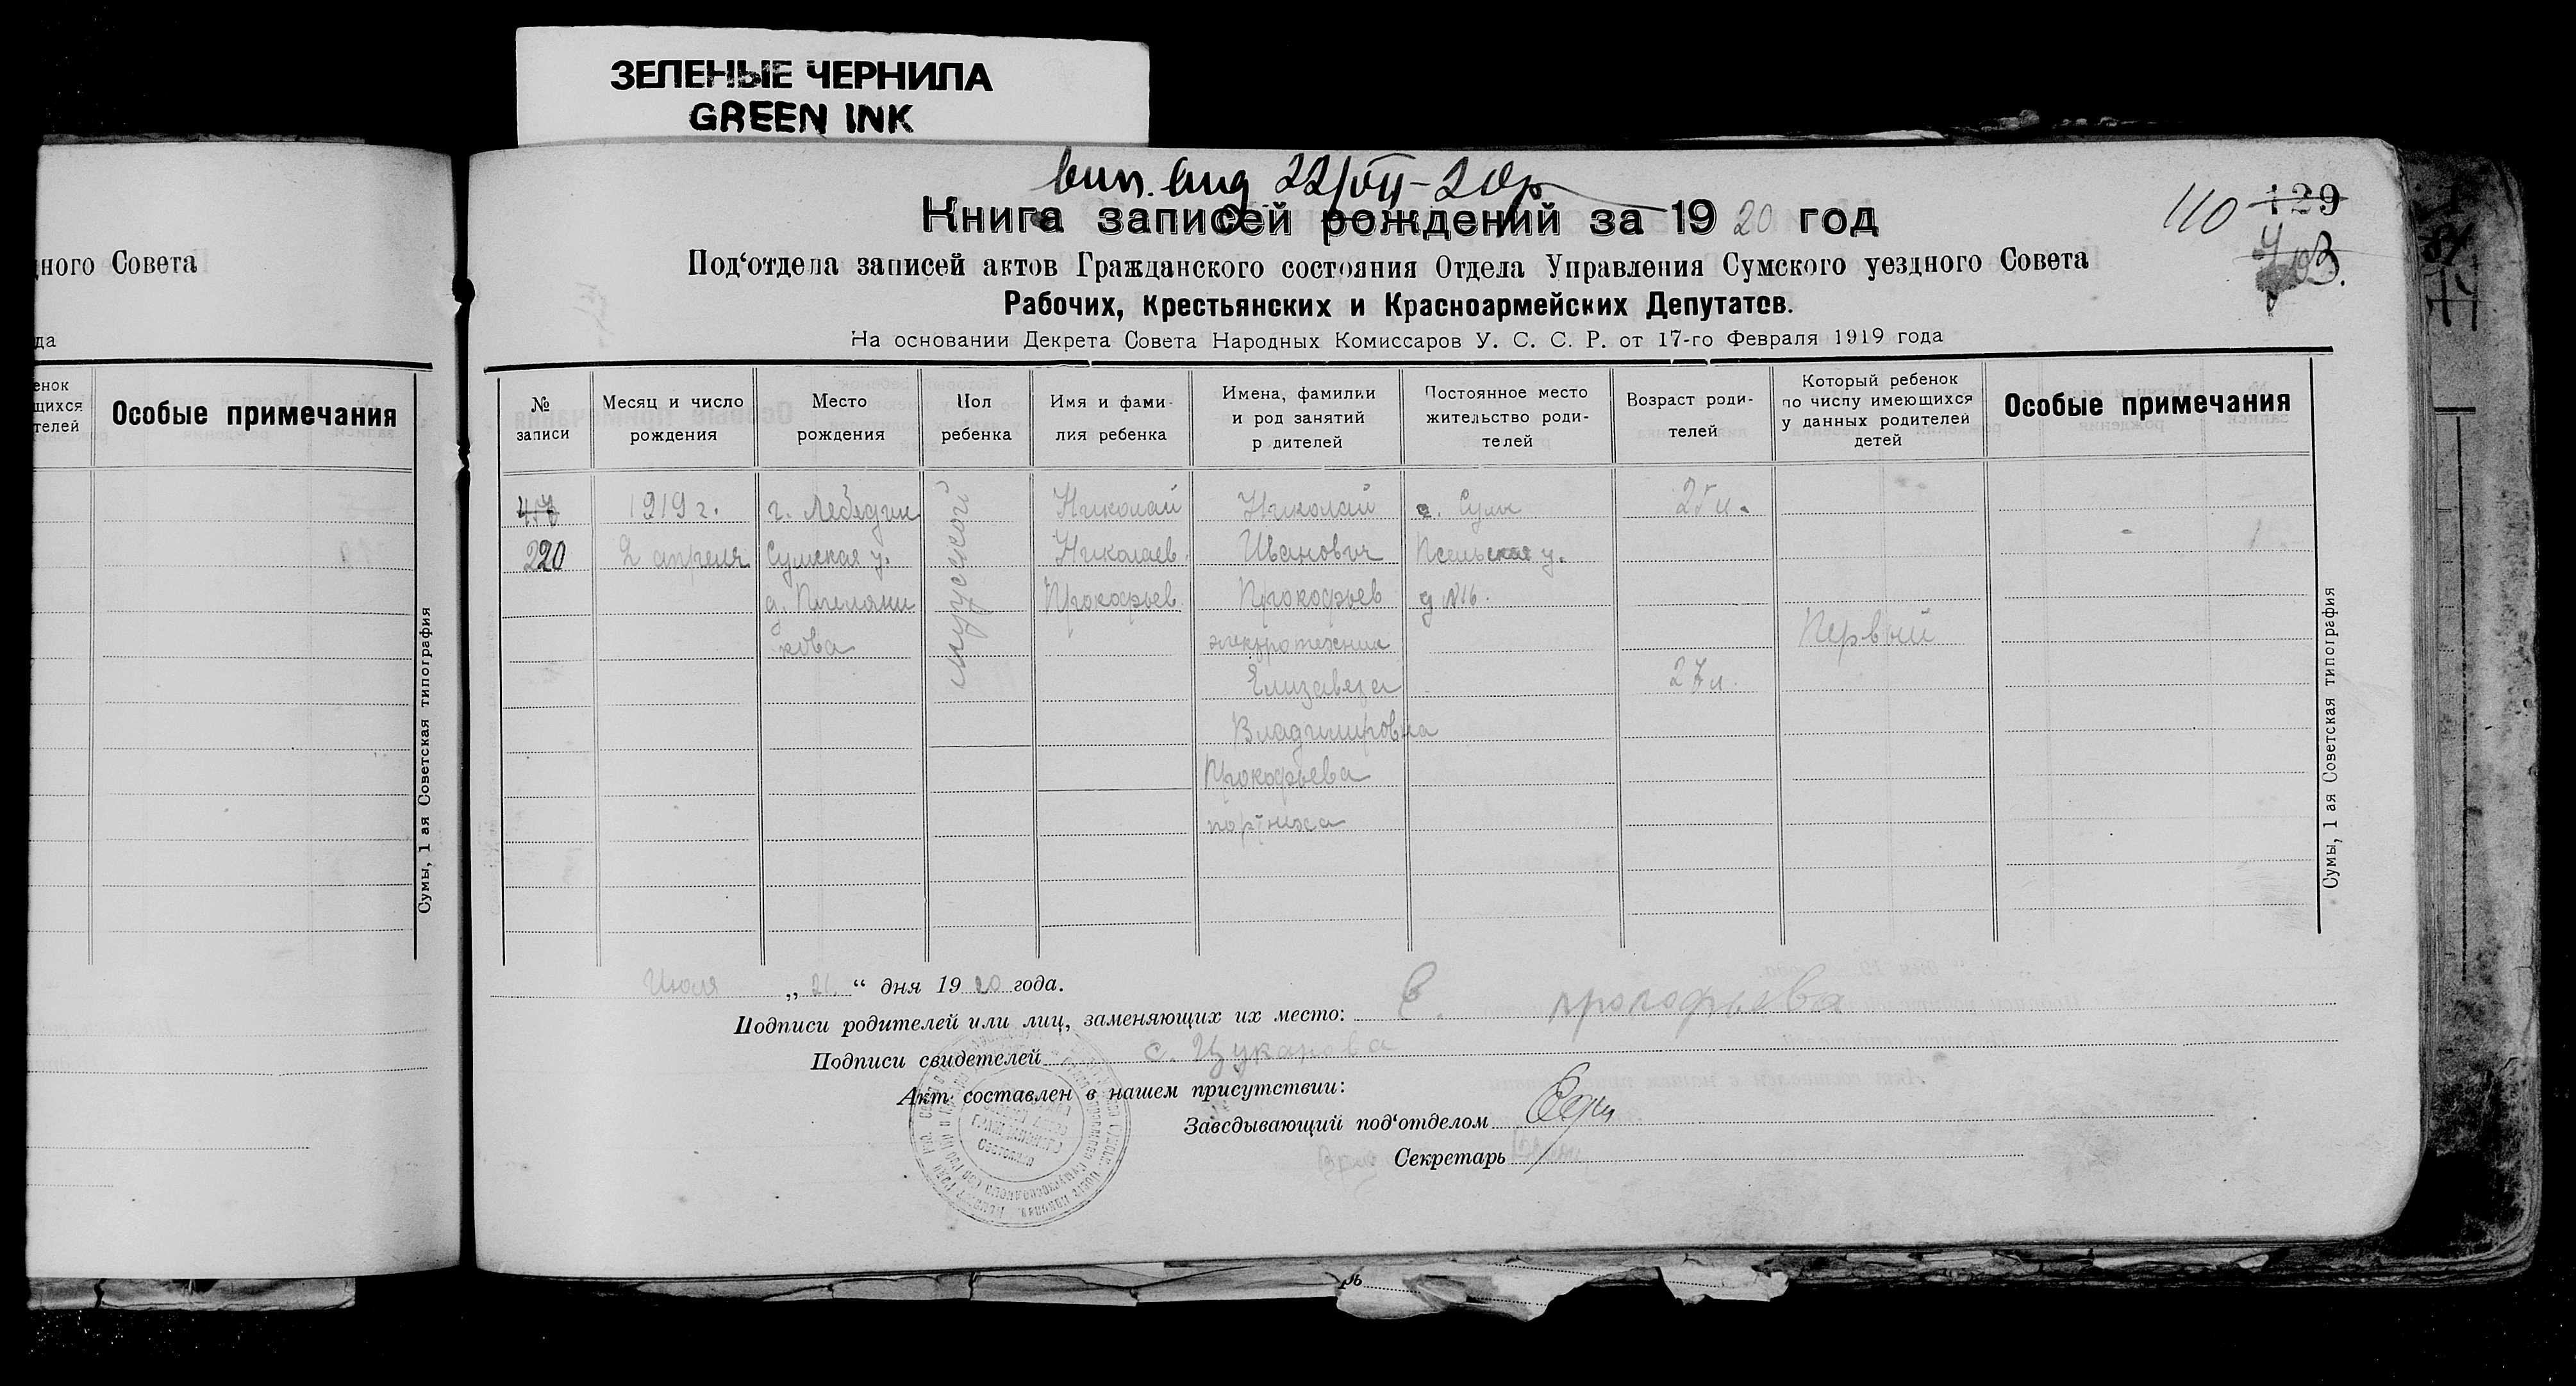 ЗЕЛЕНЫЕ ЧЕРНИЛА
GREEN INK
вып. 22/VII-20 г.
110 129
Книга записей рождений за 1920 год
Под‘отдела записей актов Гражданского состояния Отдела Управления Сумского уездного Совета
Рабочих, Крестьянских и Красноармейских Депутатов.
На основании Декрета Совета Народных Комиссаров У. С. С. Р. от 17-го Февраля 1919 года
дного Совета
да
енок
щихся
телей
Особые примечания
Сумы, 1 ая Советская типография
№ записи
Месяц и число рождения
Место рождения
Пол ребенка
Имя и фами- лия ребенка
Имена, фамилии и род занятий р дителей
Постоянное место жительство роди- телей
Возраст роди- телей
Который ребенок по числу имеющихся у данных родителей детей
Особые примечания
220
1919 г.
2 апреля
г. Лебедин
Сумская у.
д.
кова
мужской
Николай
Николаев.
Прокофьев
Николай
Иванович
Прокофьев
электротехник
Елизавета
Владимировна
Прокофьева
портниха
г. Сумы
Псельская у.
д №16.
25 л.
27 л.
Первый
Сумы, 1 ая Советская типография
Июля „21“ дня 1920 года.
Подписи родителей или лиц, заменяющих их место: Е. Прокофьева
Подписи свидетелей С. Цуканова
Акт составлен в нашем присутствии:
Заведывающий под‘отделом
Секретарь